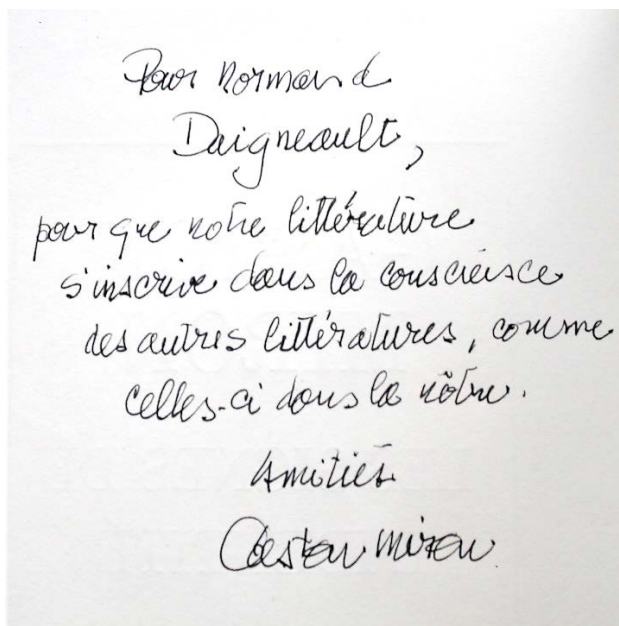 Pour Normand
Daigneault,
pour que notre littérature
s'inscrive dans la conscience
des autres littératures, comme
celles-ci dans la nôtre.
Amitiés
Gaston Miron